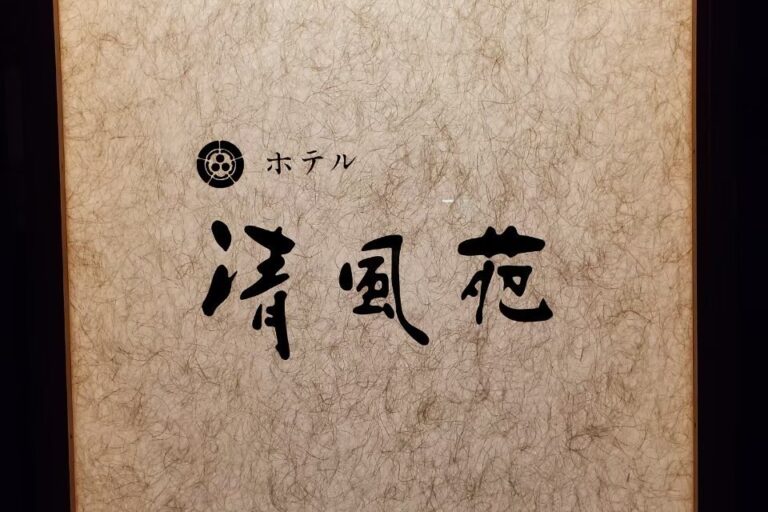 ホテル
清風苑